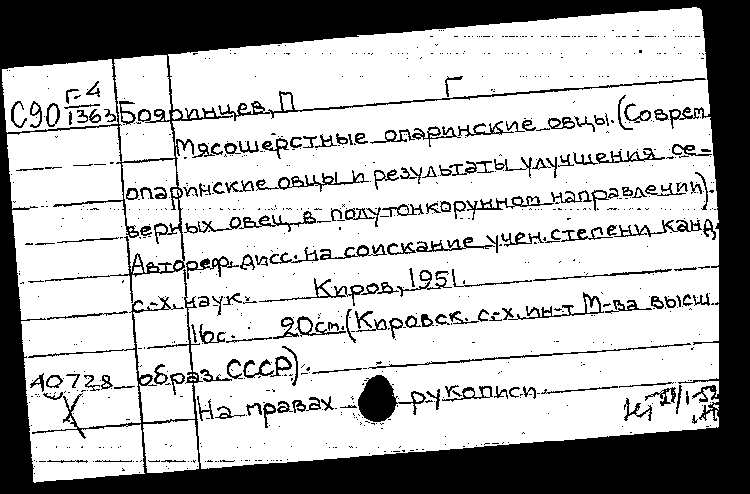 Г-4 Г
С90 1363 Бояринцев, П
Мясошерстные опаринские овцы. (Соврем.
опаринские овцы и результаты улучшения се-
верных овец в полутонкорунном направлении).
Автореф. дисс. на соискание учен. степени канд.
с.-х. наук. Киров, 1951.
16с. 20см. (Кировск. с.-х. ин-т М-ва высш.
40728 образ. СССР).
На правах рукописи.